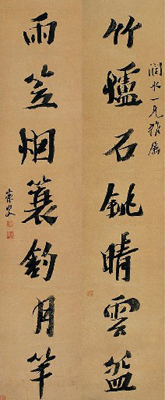 水一兄雅屬
竹爐石銚晴雲盌
雨笠烟蓑釣月竿